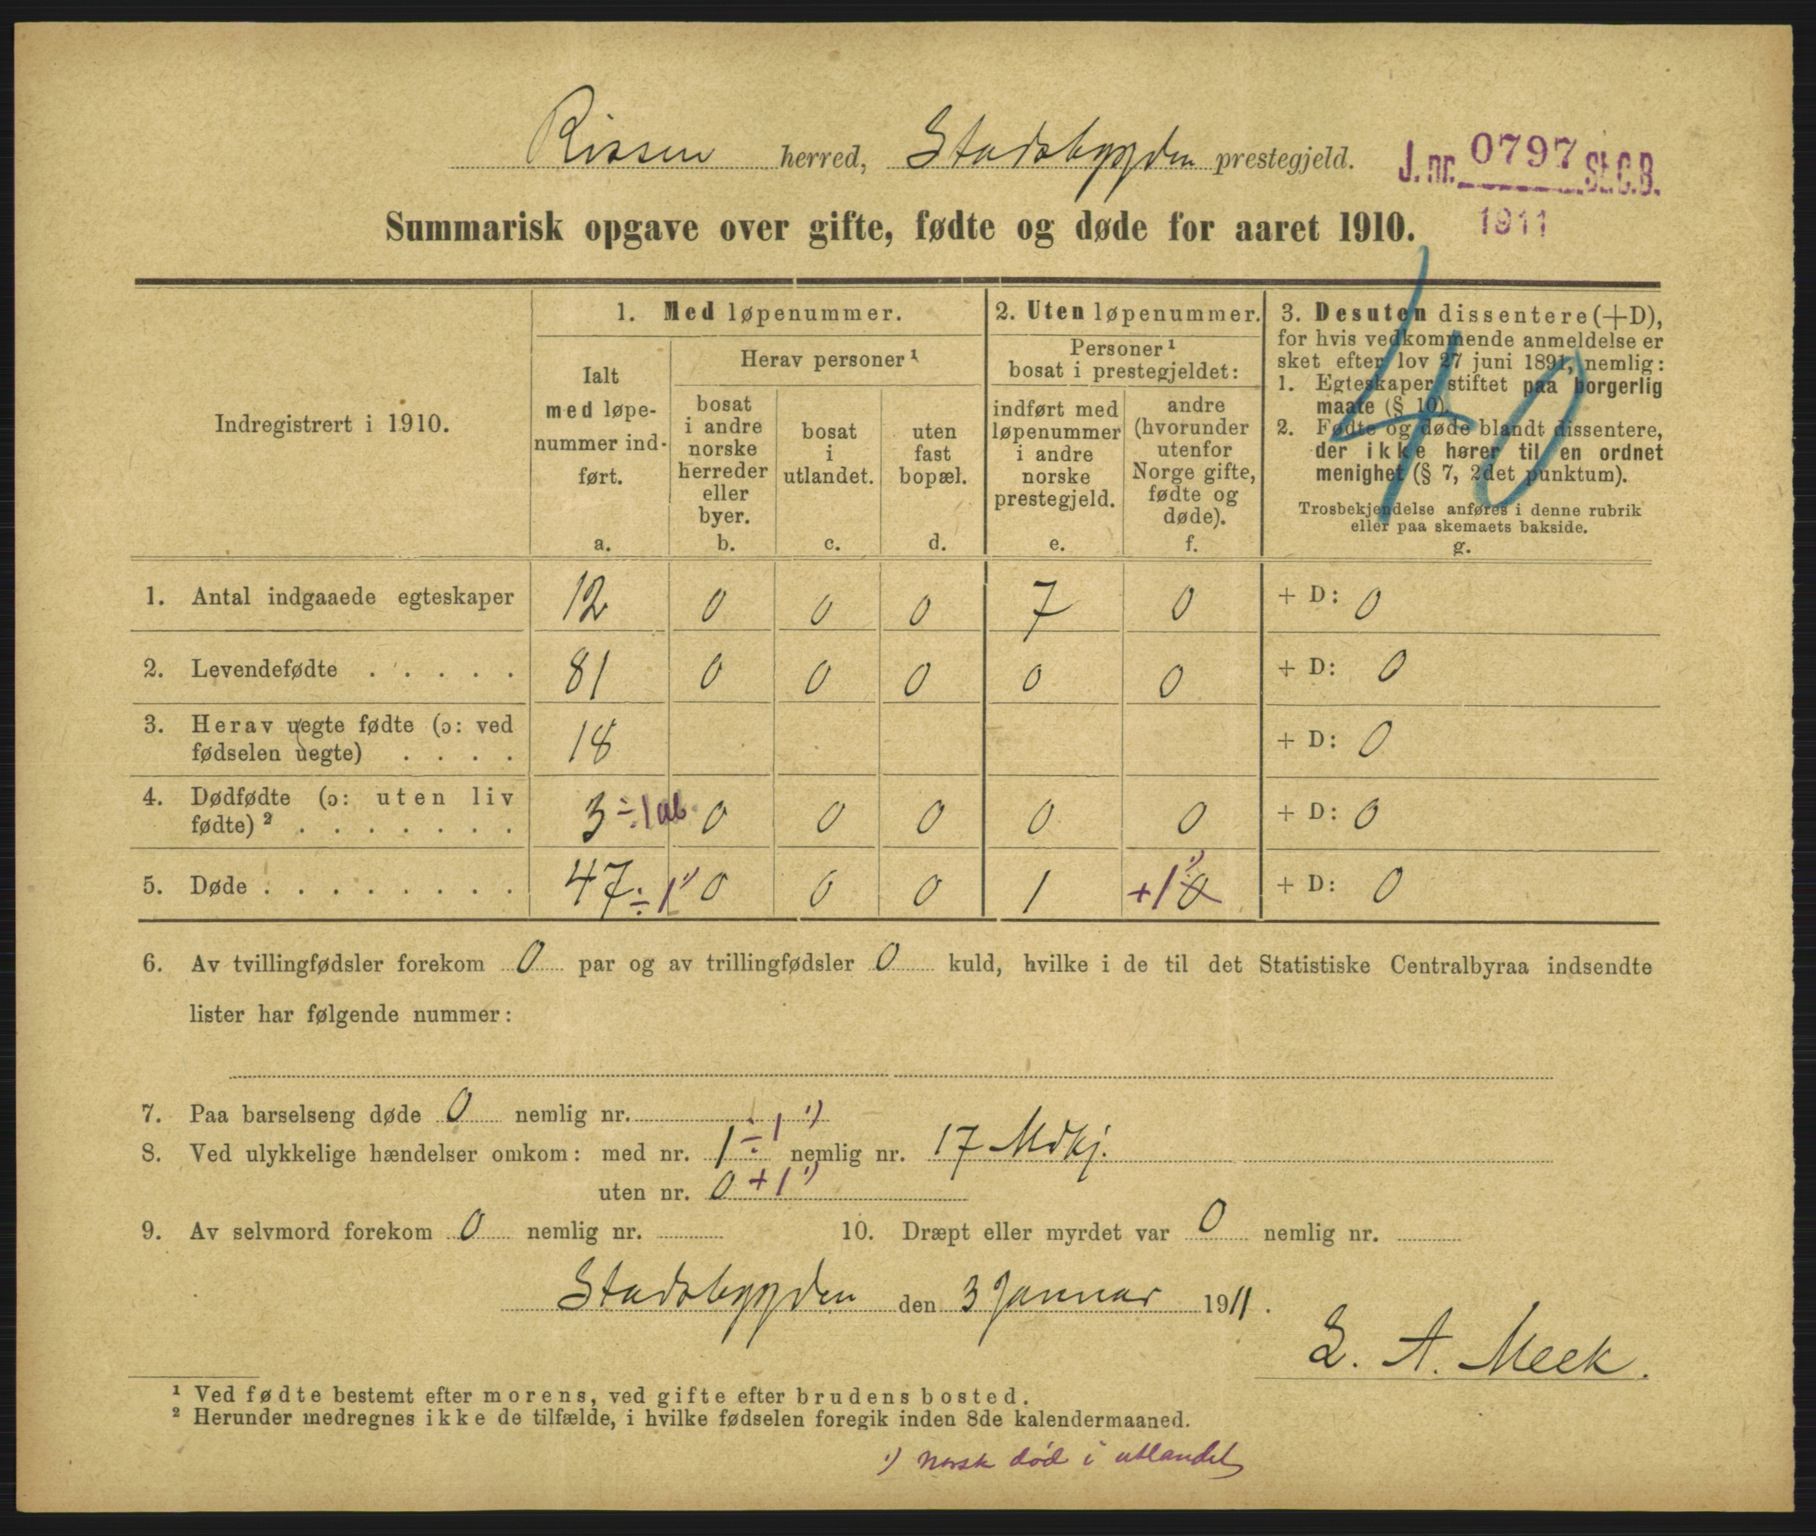 Rissen herred, Stadsbygden prestegjeld.
J. nr. 0797 St. C. B.
1911
Summarisk opgave over gifte, fødte og døde for aaret 1910.
40
Indregistrert i 1910.
1. Med løpenummer.
Ialt
med løpe-
nummer ind-
ført.
a.
Herav personer ¹
bosat
i andre
norske
herreder
eller
byer.
b.
bosat
i
utlandet.
c.
uten
fast
bopæl.
d.
2. Uten løpenummer.
Personer ¹
bosat i prestegjeldet:
indført med
løpenummer
i andre
norske
prestegjeld.
e.
andre
(hvorunder
utenfor
Norge gifte,
fødte og
døde).
f.
3. Desuten dissentere (+D),
for hvis vedkommende anmeldelse er
sket efter lov 27 juni 1891, nemlig:
1. Egteskaper stiftet paa borgerlig
maate (§ 10).
2. Fødte og døde blandt dissentere,
der ikke hører til en ordnet
menighet (§ 7, 2det punktum).
Trosbekjendelse anføres i denne rubrik
eller paa skemaets bakside.
g.
1. Antal indgaaede egteskaper 12 0 0 0 7 0 + D: 0
2. Levendefødte . . . . . 81 0 0 0 0 0 + D: 0
3. Herav uegte fødte (ɔ: ved
fødselen uegte) . . . . 18 + D: 0
4. Dødfødte (ɔ: uten liv
fødte) ² . . . . . . . 3 ÷ 1 ab. 0 0 0 0 0 + D: 0
5. Døde . . . . . . . . 47 ÷ 1 ¹) 0 0 0 1 +1 ¹) 0 + D: 0
6. Av tvillingfødsler forekom 0 par og av trillingfødsler 0 kuld, hvilke i de til det Statistiske Centralbyraa indsendte
lister har følgende nummer:
7. Paa barselseng døde 0 nemlig nr.
8. Ved ulykkelige hændelser omkom: med nr. 1 ÷ 1 ¹) nemlig nr. 17 Mdkj.
uten nr. 0 + 1 ¹)
9. Av selvmord forekom 0 nemlig nr. 10. Dræpt eller myrdet var 0 nemlig nr.
Stadsbygden den 3 Januar 1911.
L. A. Meek.
¹ Ved fødte bestemt efter morens, ved gifte efter brudens bosted.
² Herunder medregnes ikke de tilfælde, i hvilke fødselen foregik inden 8de kalendermaaned.
¹) Norsk död i utlandet